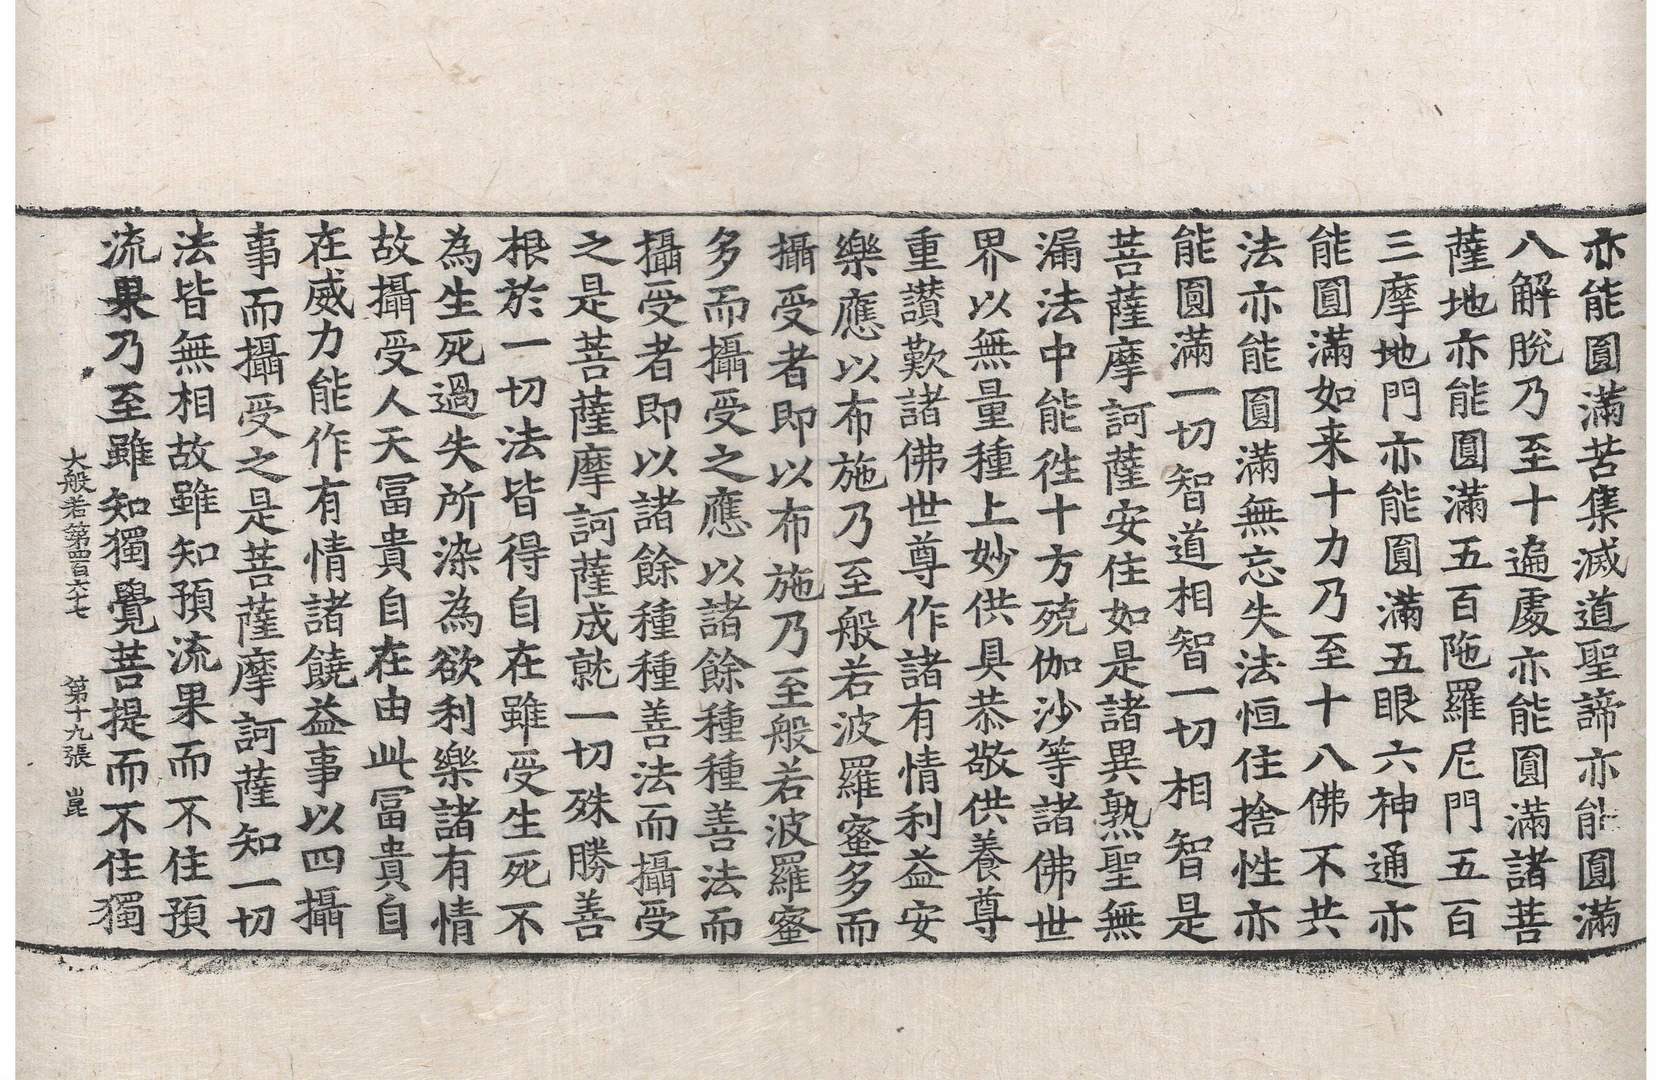 亦能圓滿苦集滅道聖諦亦能圓滿
八解脫乃至十遍處亦能圓滿諸菩
薩地亦能圓滿五百陁羅尼門五百
三摩地門亦能圓滿五眼六神通亦
能圓滿如来十力乃至十八佛不共
法亦能圓滿無忘失法恒住捨性亦
能圓滿一切智道相智一切相智是
菩薩摩訶薩安住如是諸異熟聖無
漏法中能徃十方殑伽沙等諸佛世
界以無量種上妙供具恭敬供養尊
重讚歎諸佛世尊作諸有情利益安
樂應以布施乃至般若波羅蜜多而
攝受者即以布施乃至般若波羅蜜
多而攝受之應以諸餘種種善法而
攝受者即以諸餘種種善法而攝受
之是菩薩摩訶薩成就一切殊勝善
根於一切法皆得自在雖受生死不
為生死過失所染為欲利樂諸有情
故攝受人天冨貴自在由此冨貴自
在威力能作有情諸饒益事以四攝
事而攝受之是菩薩摩訶薩知一切
法皆無相故雖知預流果而不住預
流果乃至雖知獨覺菩提而不住獨
大般若第四百六十七 第十九張 崑